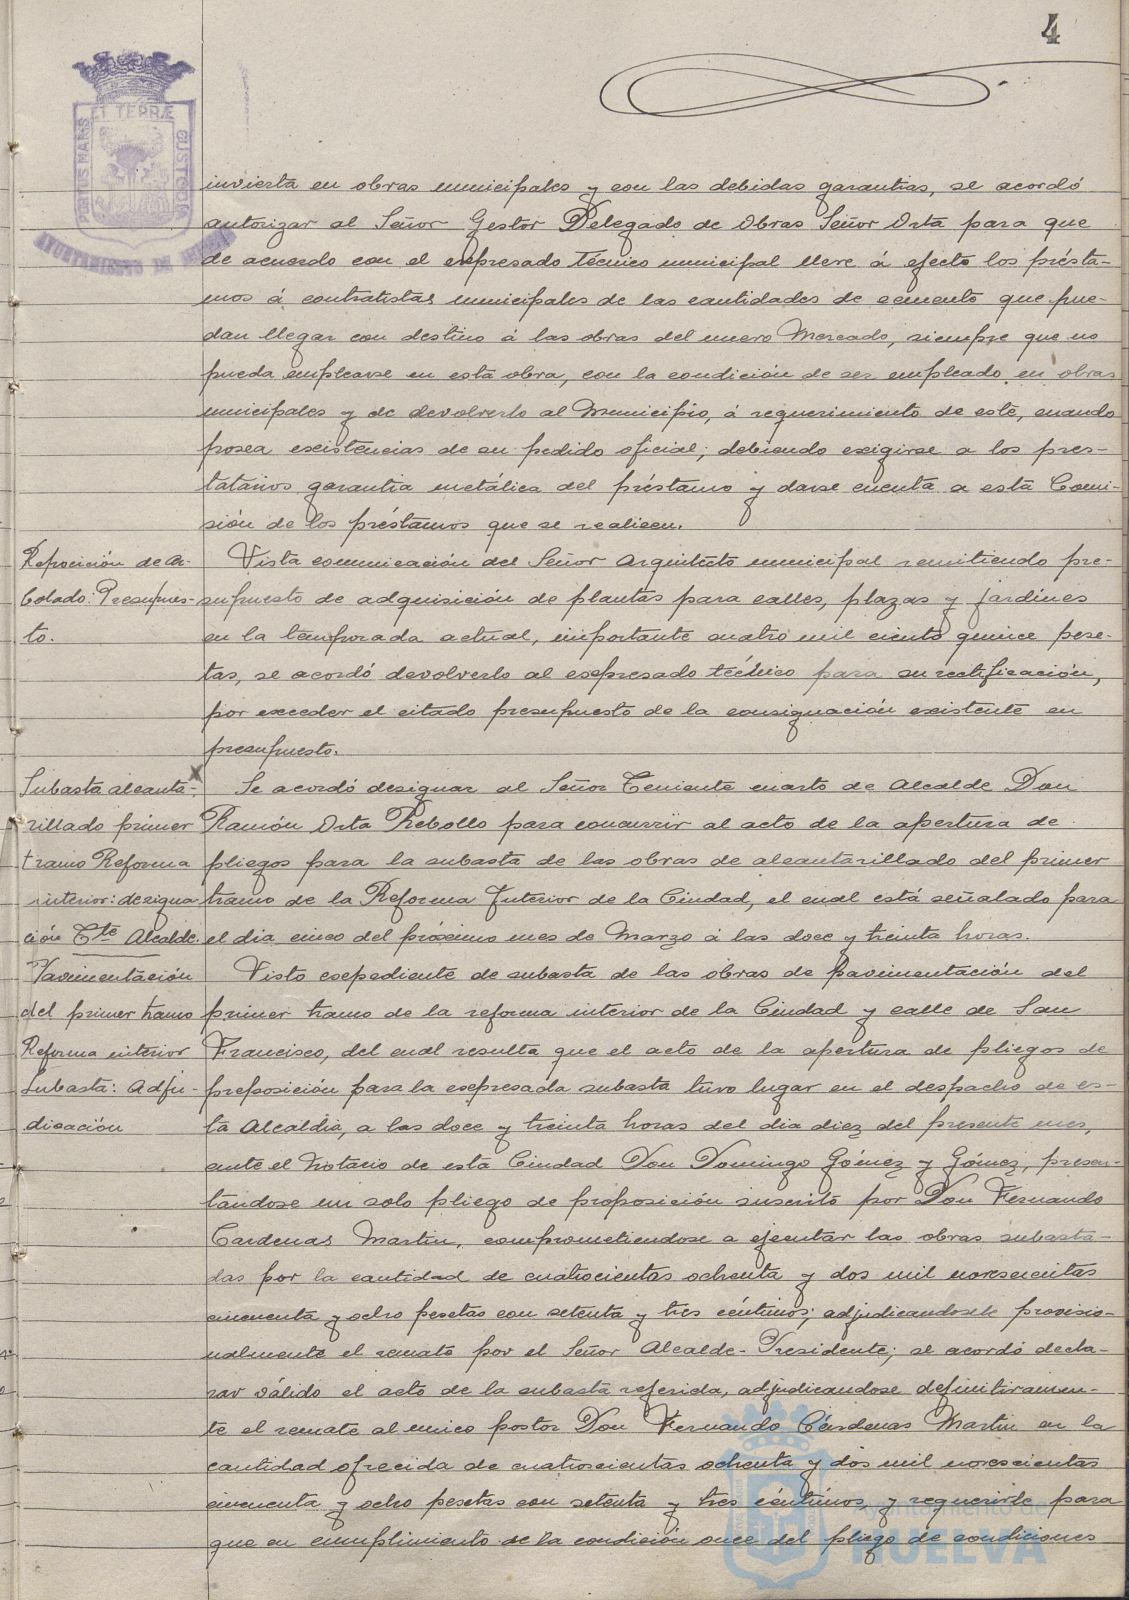 4
PORTUS MARIS ET TERRÆ CUSTODIA
AYUNTAMIENTO DE HUELVA
invierta en obras municipales y con las debidas garantias, se acordó
autorizar al Señor Gestor Delegado de Obras Señor Orta para que
de acuerdo con el expresado técnico municipal lleve á efecto los présta-
mos á contratistas municipales de las cantidades de cemento que pue-
dan llegar con destino á las obras del nuevo Mercado, siempre que no
pueda emplearse en esta obra, con la condición de ser empleado en obras
municipales y de devolverlo al Municipio, á requerimiento de este, cuando
posea existencias de su pedido oficial; debiendo exigirse a los pres-
tatarios garantia metálica del préstamo y darse cuenta a esta Comi-
sión de los préstamos que se realicen.
Reposición de ar-
bolado: Presupues-
to.
Vista comunicación del Señor Arquitecto municipal remitiendo pre-
supuesto de adquisición de plantas para calles, plazas y jardines
en la temporada actual, importante cuatro mil ciento quince pese-
tas, se acordó devolverlo al expresado técnico para su rectificación,
por exceder el citado presupuesto de la consignación existente en
presupuesto.
Subasta alcanta-
rillado primer
tramo Reforma
interior: designa
ción Tte Alcalde.
Se acordó designar al Señor Teniente cuarto de Alcalde Don
Ramón Orta Rebollo para concurrir al acto de la apertura de
pliegos para la subasta de las obras de alcantarillado del primer
tramo de la Reforma Interior de la Ciudad, el cual está señalado para
el dia cinco del próximo mes de Marzo á las doce y treinta horas.
Pavimentación
del primer tramo
Reforma interior
Subasta: Adju-
dicación
Visto expediente de subasta de las obras de pavimentación del
primer tramo de la reforma interior de la Ciudad y calle de San
Francisco, del cual resulta que el acto de la apertura de pliegos de
preposición para la expresada subasta tuvo lugar en el despacho de es-
ta Alcaldia, a las doce y treinta horas del dia diez del presente mes,
ante el Notario de esta Ciudad Don Domingo Gómez y Gómez, presen-
tándose un solo pliego de proposición suscrito por Don Fernando
Cardenas Martin, comprometiendose a ejecutar las obras subasta-
das por la cantidad de cuatrocientas ochenta y dos mil novescientas
cincuenta y ocho pesetas con setenta y tres céntimos; adjudicandosele provisio-
nalmente el remate por el Señor Alcalde-Presidente; se acordó decla-
rar válido el acto de la subasta referida, adjudicandose definitivamen-
te el remate al unico postor Don Fernando Cárdenas Martin en la
cantidad ofrecida de cuatroscientas ochenta y dos mil novescientas
cincuenta y ocho pesetas con setenta y tres céntimos, y requerirle para
que en cumplimiento de la condición once del pliego de condiciones
Ayuntamiento de
HUELVA